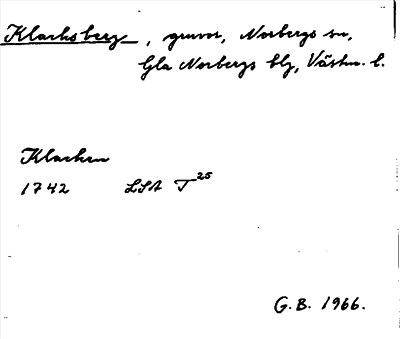 Klacksberg, gruvor, Norbergs sn,
Gla Norbergs blg, Västm. l.
Klacken
1742 LSA T 25
G.B. 1966.